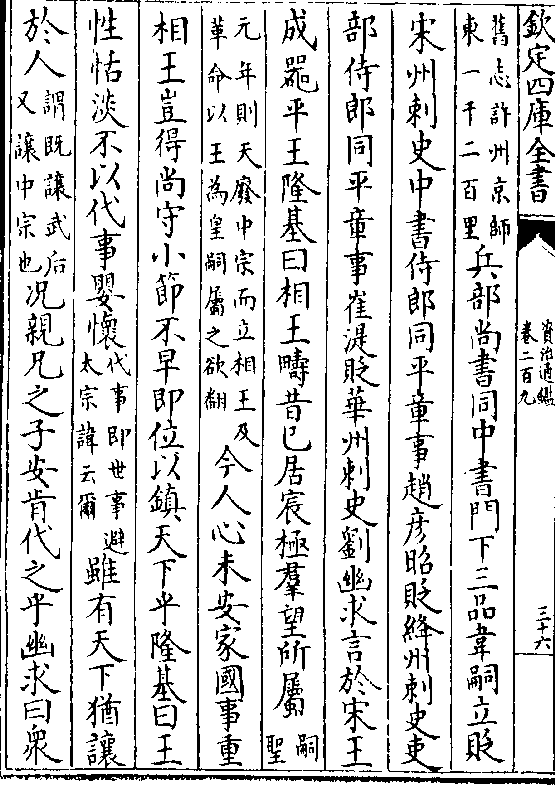 欽定四庫全書
資治通鑑
卷二百九
三十六
舊志許州京師
東一千二百里
兵部尚書同中書門下三品韋嗣立貶
宋州刺史中書侍郎同平章事趙彥昭貶絳州刺史吏
部侍郎同平章事崔湜貶華州刺史劉幽求言於宋王
成器平王隆基曰相王疇昔已居宸極羣望所屬
嗣
聖
元年則天廢中宗而立相王及
革命以王為皇嗣屬之欲翻
今人心未安家國事重
相王豈得尚守小節不早即位以鎮天下乎隆基曰王
性恬淡不以代事嬰懷
代事即世事避
太宗諱云爾
雖有天下猶讓
於人
謂既讓武后
又讓中宗也
况親兄之子安肯代之乎幽求曰衆